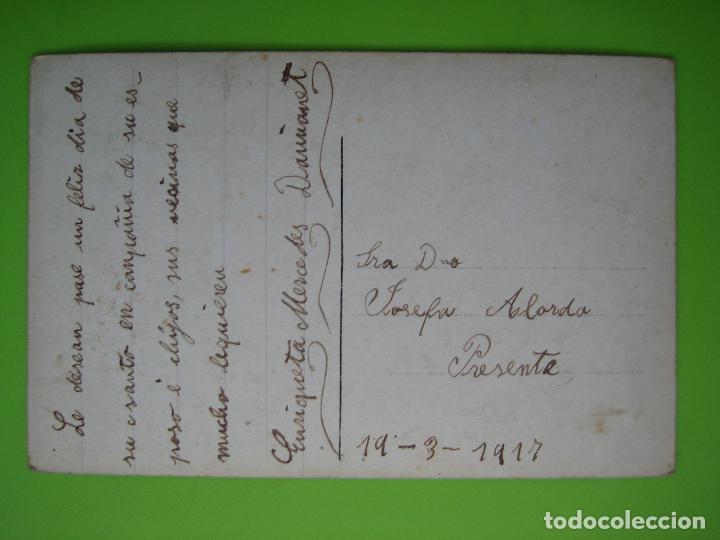 Le desean pase un feliz dia de
su santo en compañia de su es-
poso é hijos, sus vecinas que
mucho le quieren
Enriqueta Mercedes
Sra Dna
Josefa Alorda
Presente
19-3-1917
todocoleccion
todocoleccion.net